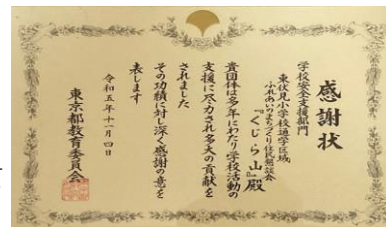 感謝状
学校安全支援部門
東伏見小学校通学区域
ふれあいのまちづくり住民懇談会
『くじら山』殿
貴団体は多年にわたり学校活動の
支援に尽力され多大の貢献を
されました
その功績に対し深く感謝の意を
表します
令和五年十一月四日
東京都教育委員会